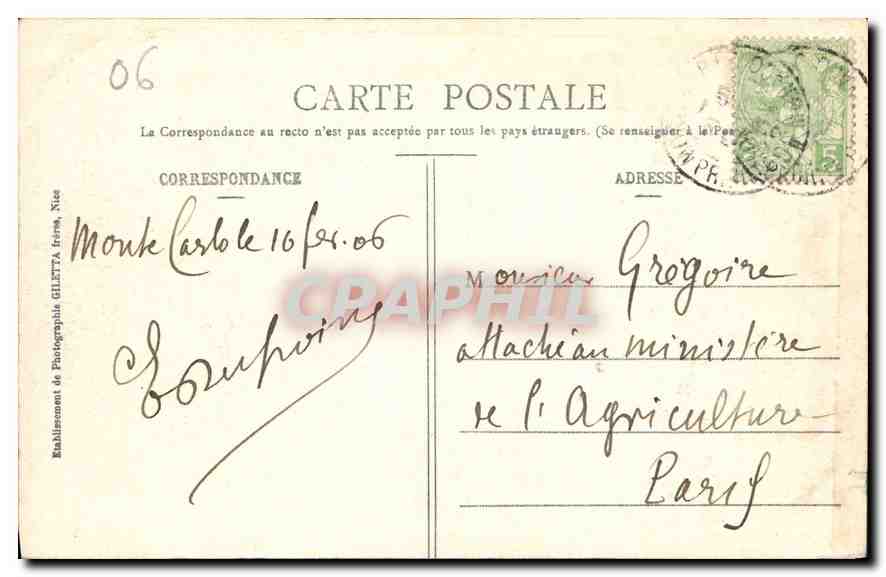 06
CARTE POSTALE
La Correspondance au recto n'est pas acceptée par tous les pays étrangers. (Se renseigner à la
CORRESPONDANCE
ADRESSE
Monte Carlo le 16 fer. 06
Monsieur Grégoire
attaché au ministère
de l'Agriculture
Paris
Etablissement de Photographie GILETTA frères, Nice
CPAPHIL
5